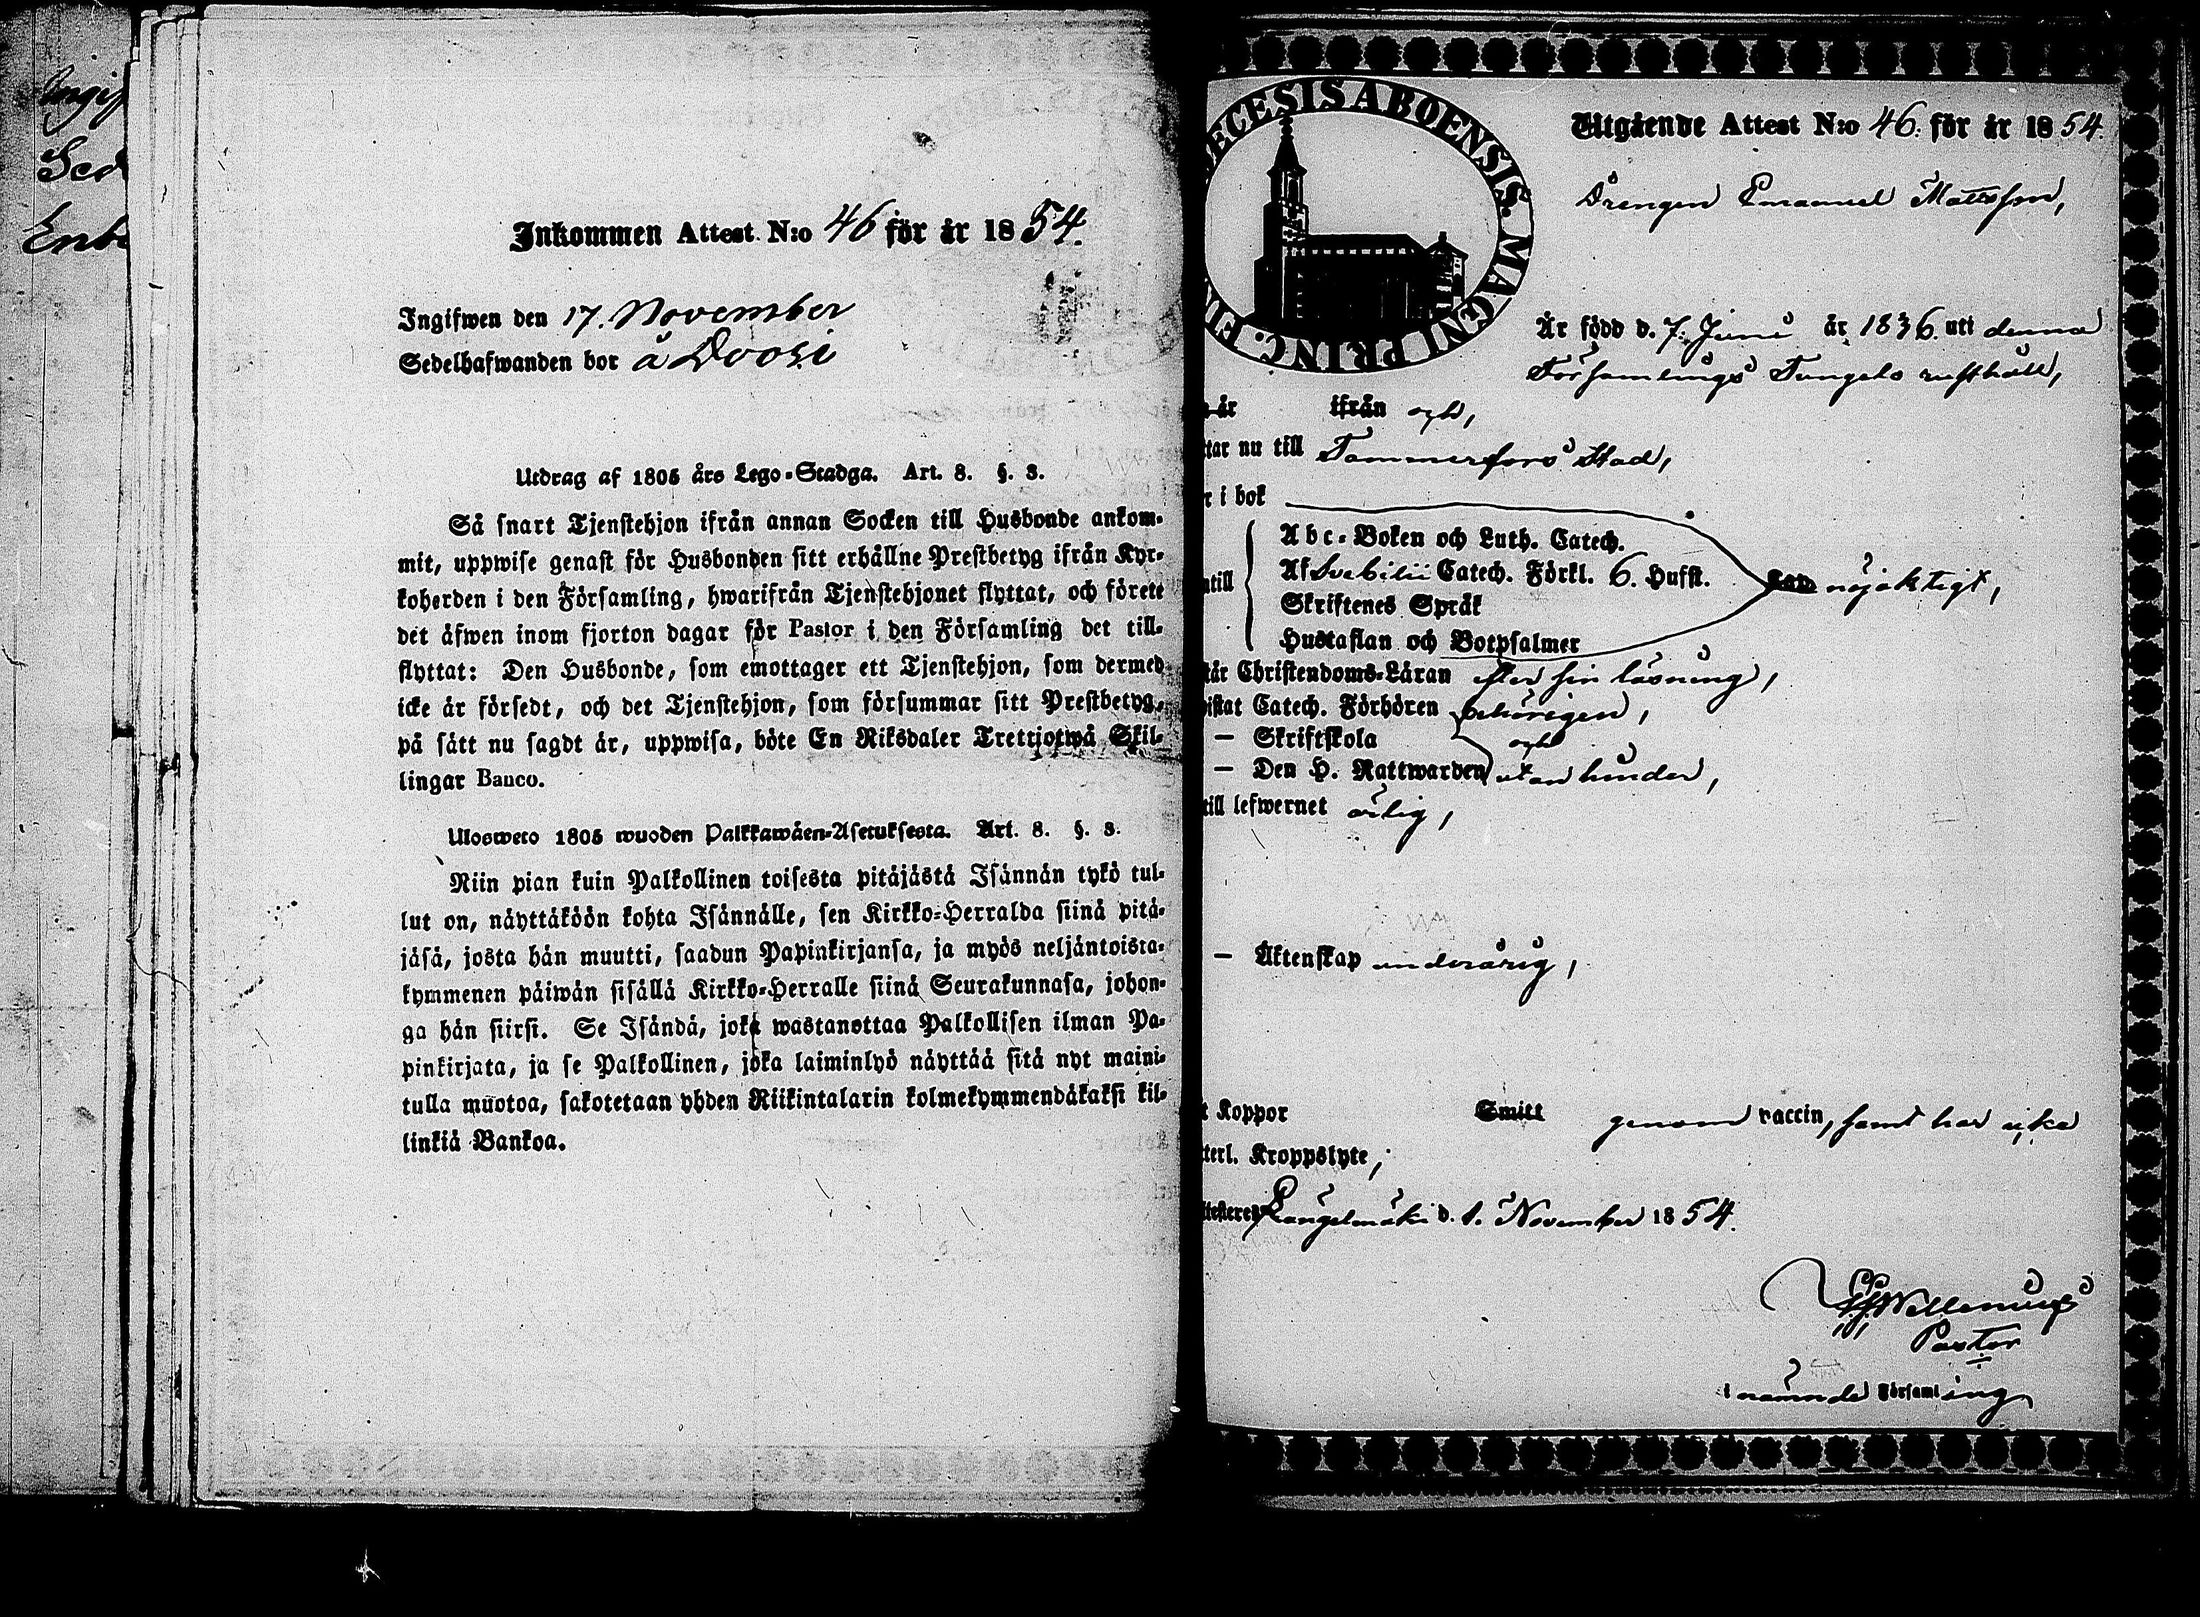 Inkommen Attest N:o 46 för år 1854.
Ingifwen den 17. November
Sedelhafwanden bor å
Utdrag af 1805 års Lego-Stadga. Art. 8. §. 3.
Så snart Tjenstehjon ifrån annan Socken till Husbonde ankom-
mit, uppwise genast för Husbonden sitt erhållne Prestbetyg ifrån Kyr-
koherden i den Församling, hwarifrån Tjenstehjonet flyttat, och förete
det äfwen inom fjorton dagar för Pastor i den Församling det till-
flyttat: Den Husbonde, som emottager ett Tjenstehjon, som dermed
icke är försedt, och det Tjenstehjon, som försummar sitt Prestbetyg,
på sätt nu sagdt är, uppwisa, böte En Riksdaler Trettjotwå Skil-
lingar Banco.
Ulosweto 1805 wuoden Palkkawäen-Asetuksesta. Art. 8. §. 3.
Niin pian kuin Palkollinen toisesta pitäjästä Isännän tykö tul-
lut on, näyttäköön kohta Isännälle, sen Kirkko-Herralda siinä pitä-
jäsä, josta hän muutti, saadun Papinkirjansa, ja myös neljäntoista-
kymmenen päiwän sisällä Kirkko-Herralle siinä Seurakunnasa, johon-
ga hän siirsi. Se Isändä, joka wastanottaa Palkollisen ilman Pa-
pinkirjata, ja se Palkollinen, joka laiminlyö näyttää sitä nyt maini-
tulla muotoa, sakotetaan yhden Riikintalarin kolmekymmendäkaksi kil-
linkiä Bankoa.
ECESIS ABOENSIS. MAGNI PRINC. FIN
Utgående Attest N:o 46. för år 1854.
Drengen Emanuel Mattsson,
Är född d. 7. Junii år 1836. uti denna
Församlings rusthåll,
år ifrån och,
tar nu till Tammerfors Stad,
r i bok
Abc-Boken och Luth. Catech.
ntill Af Svebilii Catech. Förkl. 6. Hufst. kan nöjaktigt,
Skriftenes Språk
Hustaflan och Botpsalmer
tår Christendoms-Läran efter sin läsning,
istat Catech. Förhören behörigen,
— Skriftskola och
— Den H. Nattwarden utan hinder,
till lefwernet ärlig,
— Äktenskap underårig,
t Koppor Smitt genom vaccin, samt har icke
tterl. Kroppslyte,
ttesteres Längelmäki d. 1. November 1854.
Wellenius
Pastor
i nämnde Församling